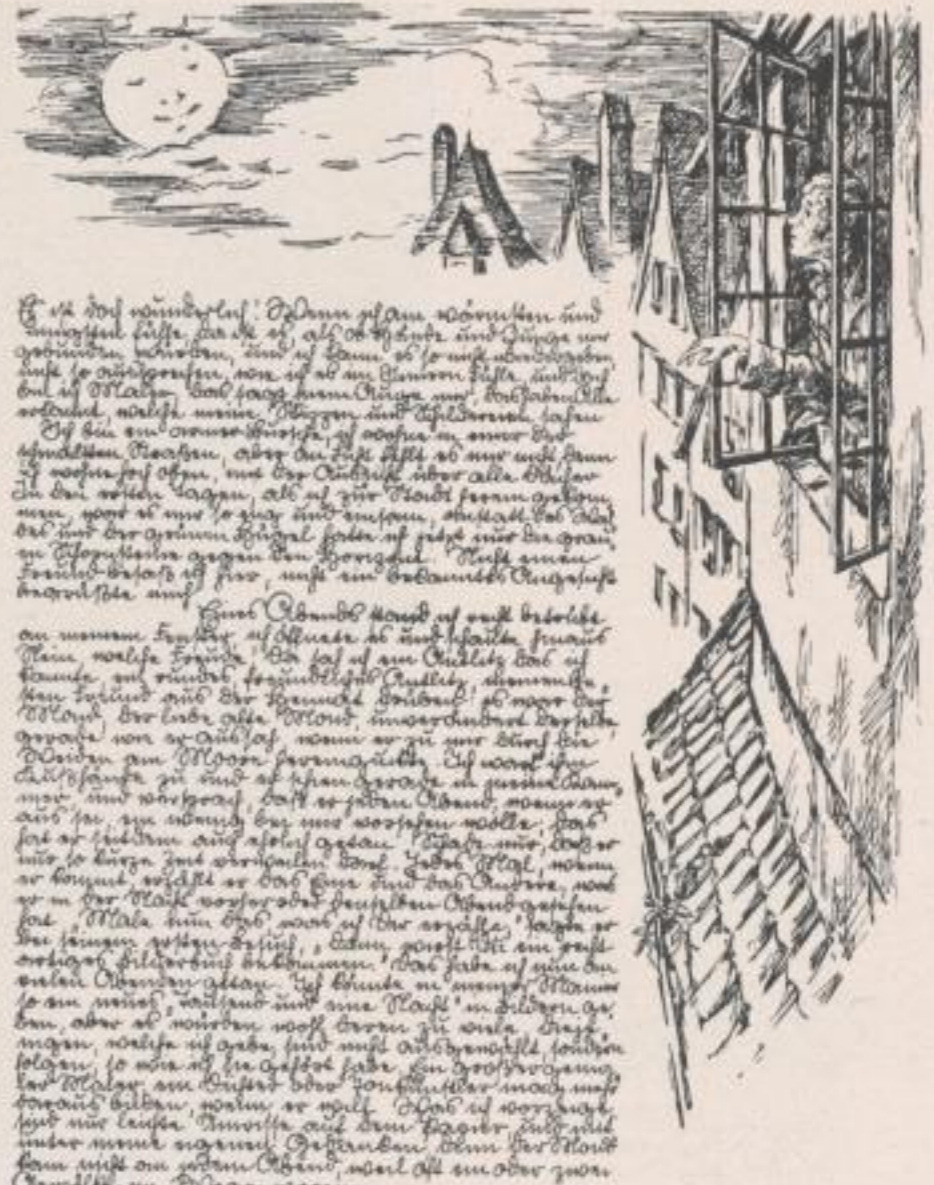 Es ist doch wunderlich! Wenn ich am wärmsten und
innigsten fühle, da ist es, als ob Hände und Zunge mir
gebunden wären, und ich kann es so nicht wiedergeben
nicht so aussprechen, wie ich es im Innern fühle, und doch
bin ich Maler, das sagt mein Auge mir, das haben Alle
erkannt, welche meine Skizzen und Schildereien sahen
Ich bin ein armer Bursche, ich wohne in einer der
schmalsten Straßen, aber an Licht fehlt es mir nicht denn
ich wohne hoch oben, mit der Aussicht über alle Dächer
In den ersten Tagen, als ich zur Stadt herein gekom
men, war es mir so eng und einsam, anstatt des Wal
des und der grünen Hügel hatte ich jetzt nur die grau
en Schornsteine gegen den Horizont. Nicht einen
Freund besaß ich hier, nicht ein bekanntes Angesicht
begrüßte mich
Eines Abends stand ich recht betrübt
an meinem Fenster, ich öffnete es und schaute hinaus
Nein, welche Freude! Da sah ich ein Antlitz das ich
kannte, ein rundes, freundliches Antlitz, meinen be
sten Freund aus der Heimat drüben: es war der
Mond, der liebe alte Mond, unverändert derselbe,
gerade wie er aussah, wenn er zu mir durch die
Weiden am Moore hereinguckte. Ich warf ihm
Kußhände zu und er schien gerade in meine Kam-
mer, und versprach, daß er jeden Abend, wenn er
aus sei, ein wenig bei mir vorsehen wolle; das
hat er seitdem auch ehrlich getan. Schade nur, daß er
nur so kurze Zeit verweilen darf. Jedes Mal, wenn
er kommt, erzählt er das Eine und das Andere, was
er in der Nacht vorher oder denselben Abend gesehen
hat. „Male nun das, was ich dir erzähle," sagte er
bei seinem ersten Besuch, „dann wirst Du ein recht
artiges Bilderbuch bekommen." Das habe ich nun an
vielen Abenden getan. Ich könnte in meiner Manier
so ein neues „Tausend und eine Nacht" in Bildern ge-
ben, aber es würden wohl deren zu viele. Dieje-
nigen, welche ich gebe, sind nicht ausgewählt, sondern
folgen, so wie ich sie gehört habe. Ein großer genia-
ler Maler, ein Dichter oder Tonkünstler mag mehr
daraus bilden, wenn er will. Was ich vorzeige,
sind nur leichte Umrisse auf dem Papier und mit
unter meine eigenen Gedanken, denn der Mond
kam nicht an jedem Abend, weil oft ein oder zwei